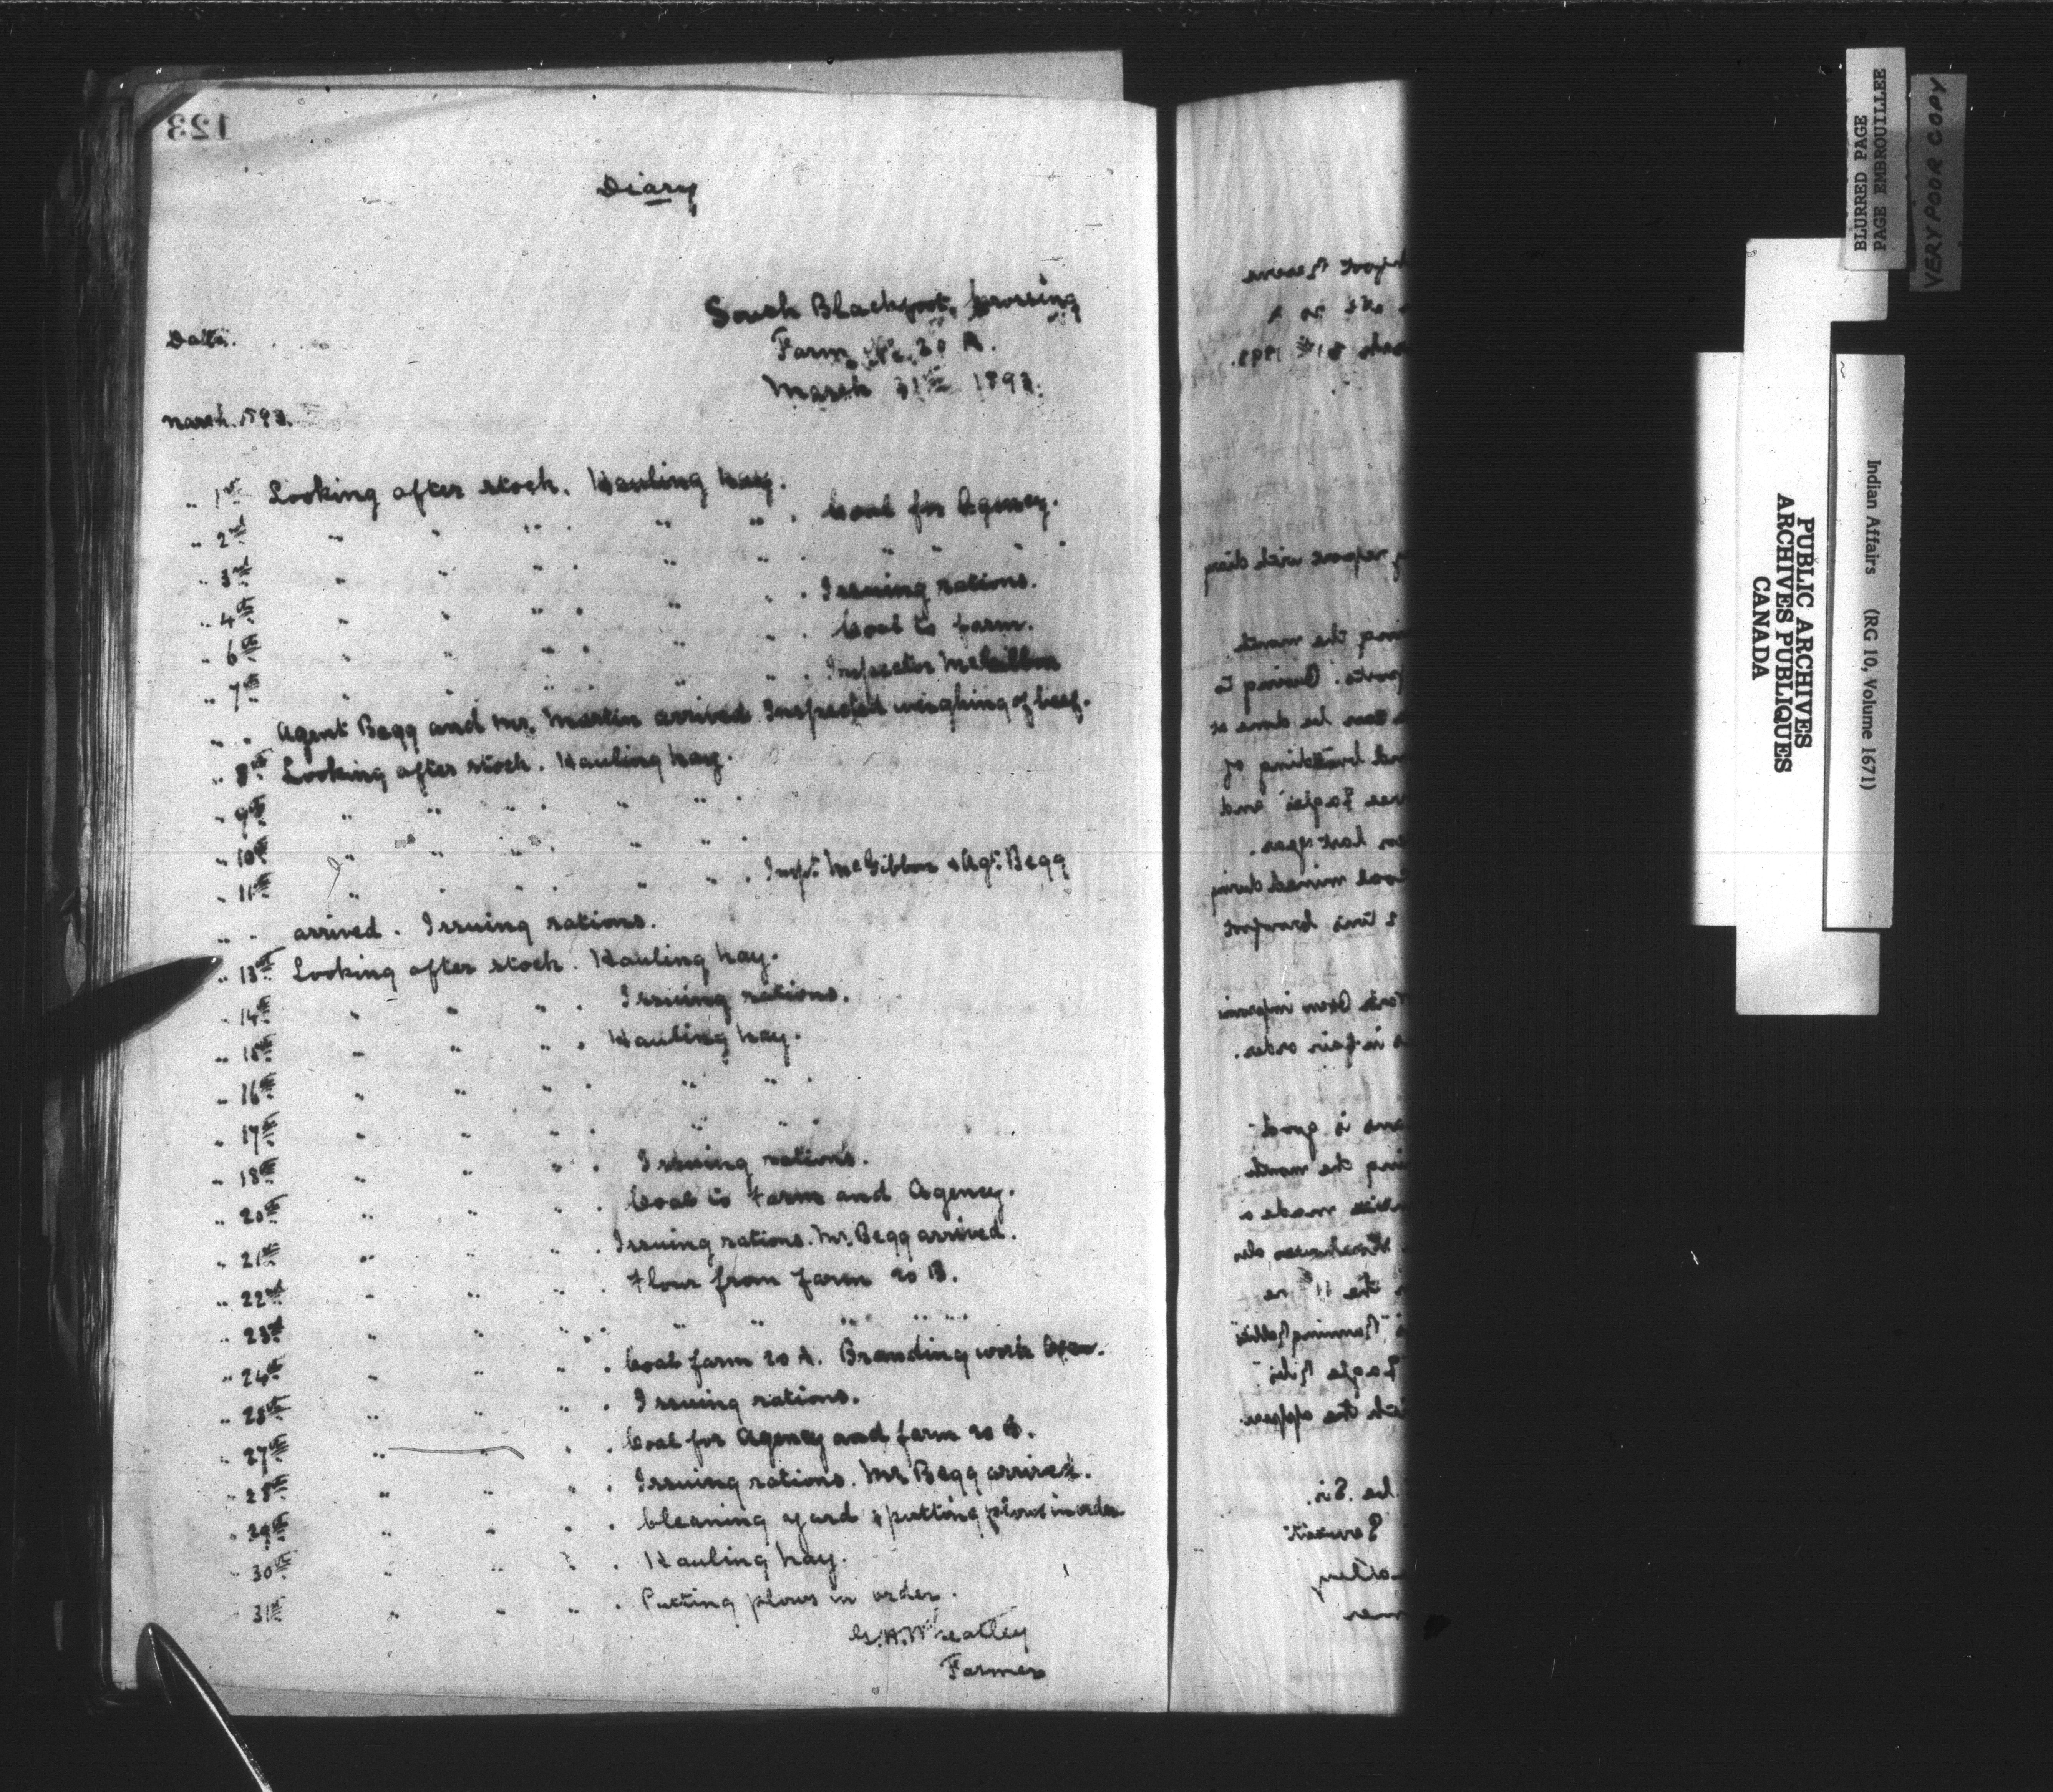 123
Diary
South Blackfoot Crossing
Date.
Farm No. 20 A.
March 31st 1893.
March. 1893.
" 1st Looking after stock. Hauling hay.
" 2nd " " " " " . Coal for Agency.
" 3rd " " " . " " . " " " .
" 4th " " " . " " . Issuing rations.
" 6th " " " . " " . Coal to farm.
" 7th " " " " " . Inspector McGibbon
" " Agent Begg and Mr. Martin arrived Inspected weighing of beef.
" 8th Looking after stock. Hauling hay.
" 9th " " " . " " .
" 10th " " " . " " .
" 11th " " " . " " . Inspt. McGibbon & Agt. Begg
" " arrived. Issuing rations.
" 13th Looking after stock. Hauling hay.
" 14th " " " . Issuing rations.
" 15th " " " . Hauling hay.
" 16th " " " . " " .
" 17th " " " . " " .
" 18th " " " . Issuing rations.
" 20th " " " . Coal to Farm and Agency.
" 21st " " " . Issuing rations. Mr. Begg arrived.
" 22nd " " " . Flour from farm 20 B.
" 23rd " " " . " " " " "
" 24th " " " . Coal farm 20 A. Branding work Oxen.
" 25th " " " . Issuing rations.
" 27th " " " . Coal for Agency and farm 20 B.
" 28th " " " . Issuing rations. Mr Begg arrived.
" 29th " " " . Cleaning yard & putting plows in order
" 30th " " " . Hauling hay.
" 31st " " " . Putting plows in order.
G. H. Wheatley
Farmer
BLURRED PAGE
PAGE EMBROUILLEE
VERY POOR COPY
Indian Affairs (RG 10, Volume 1671)
PUBLIC ARCHIVES
ARCHIVES PUBLIQUES
CANADA